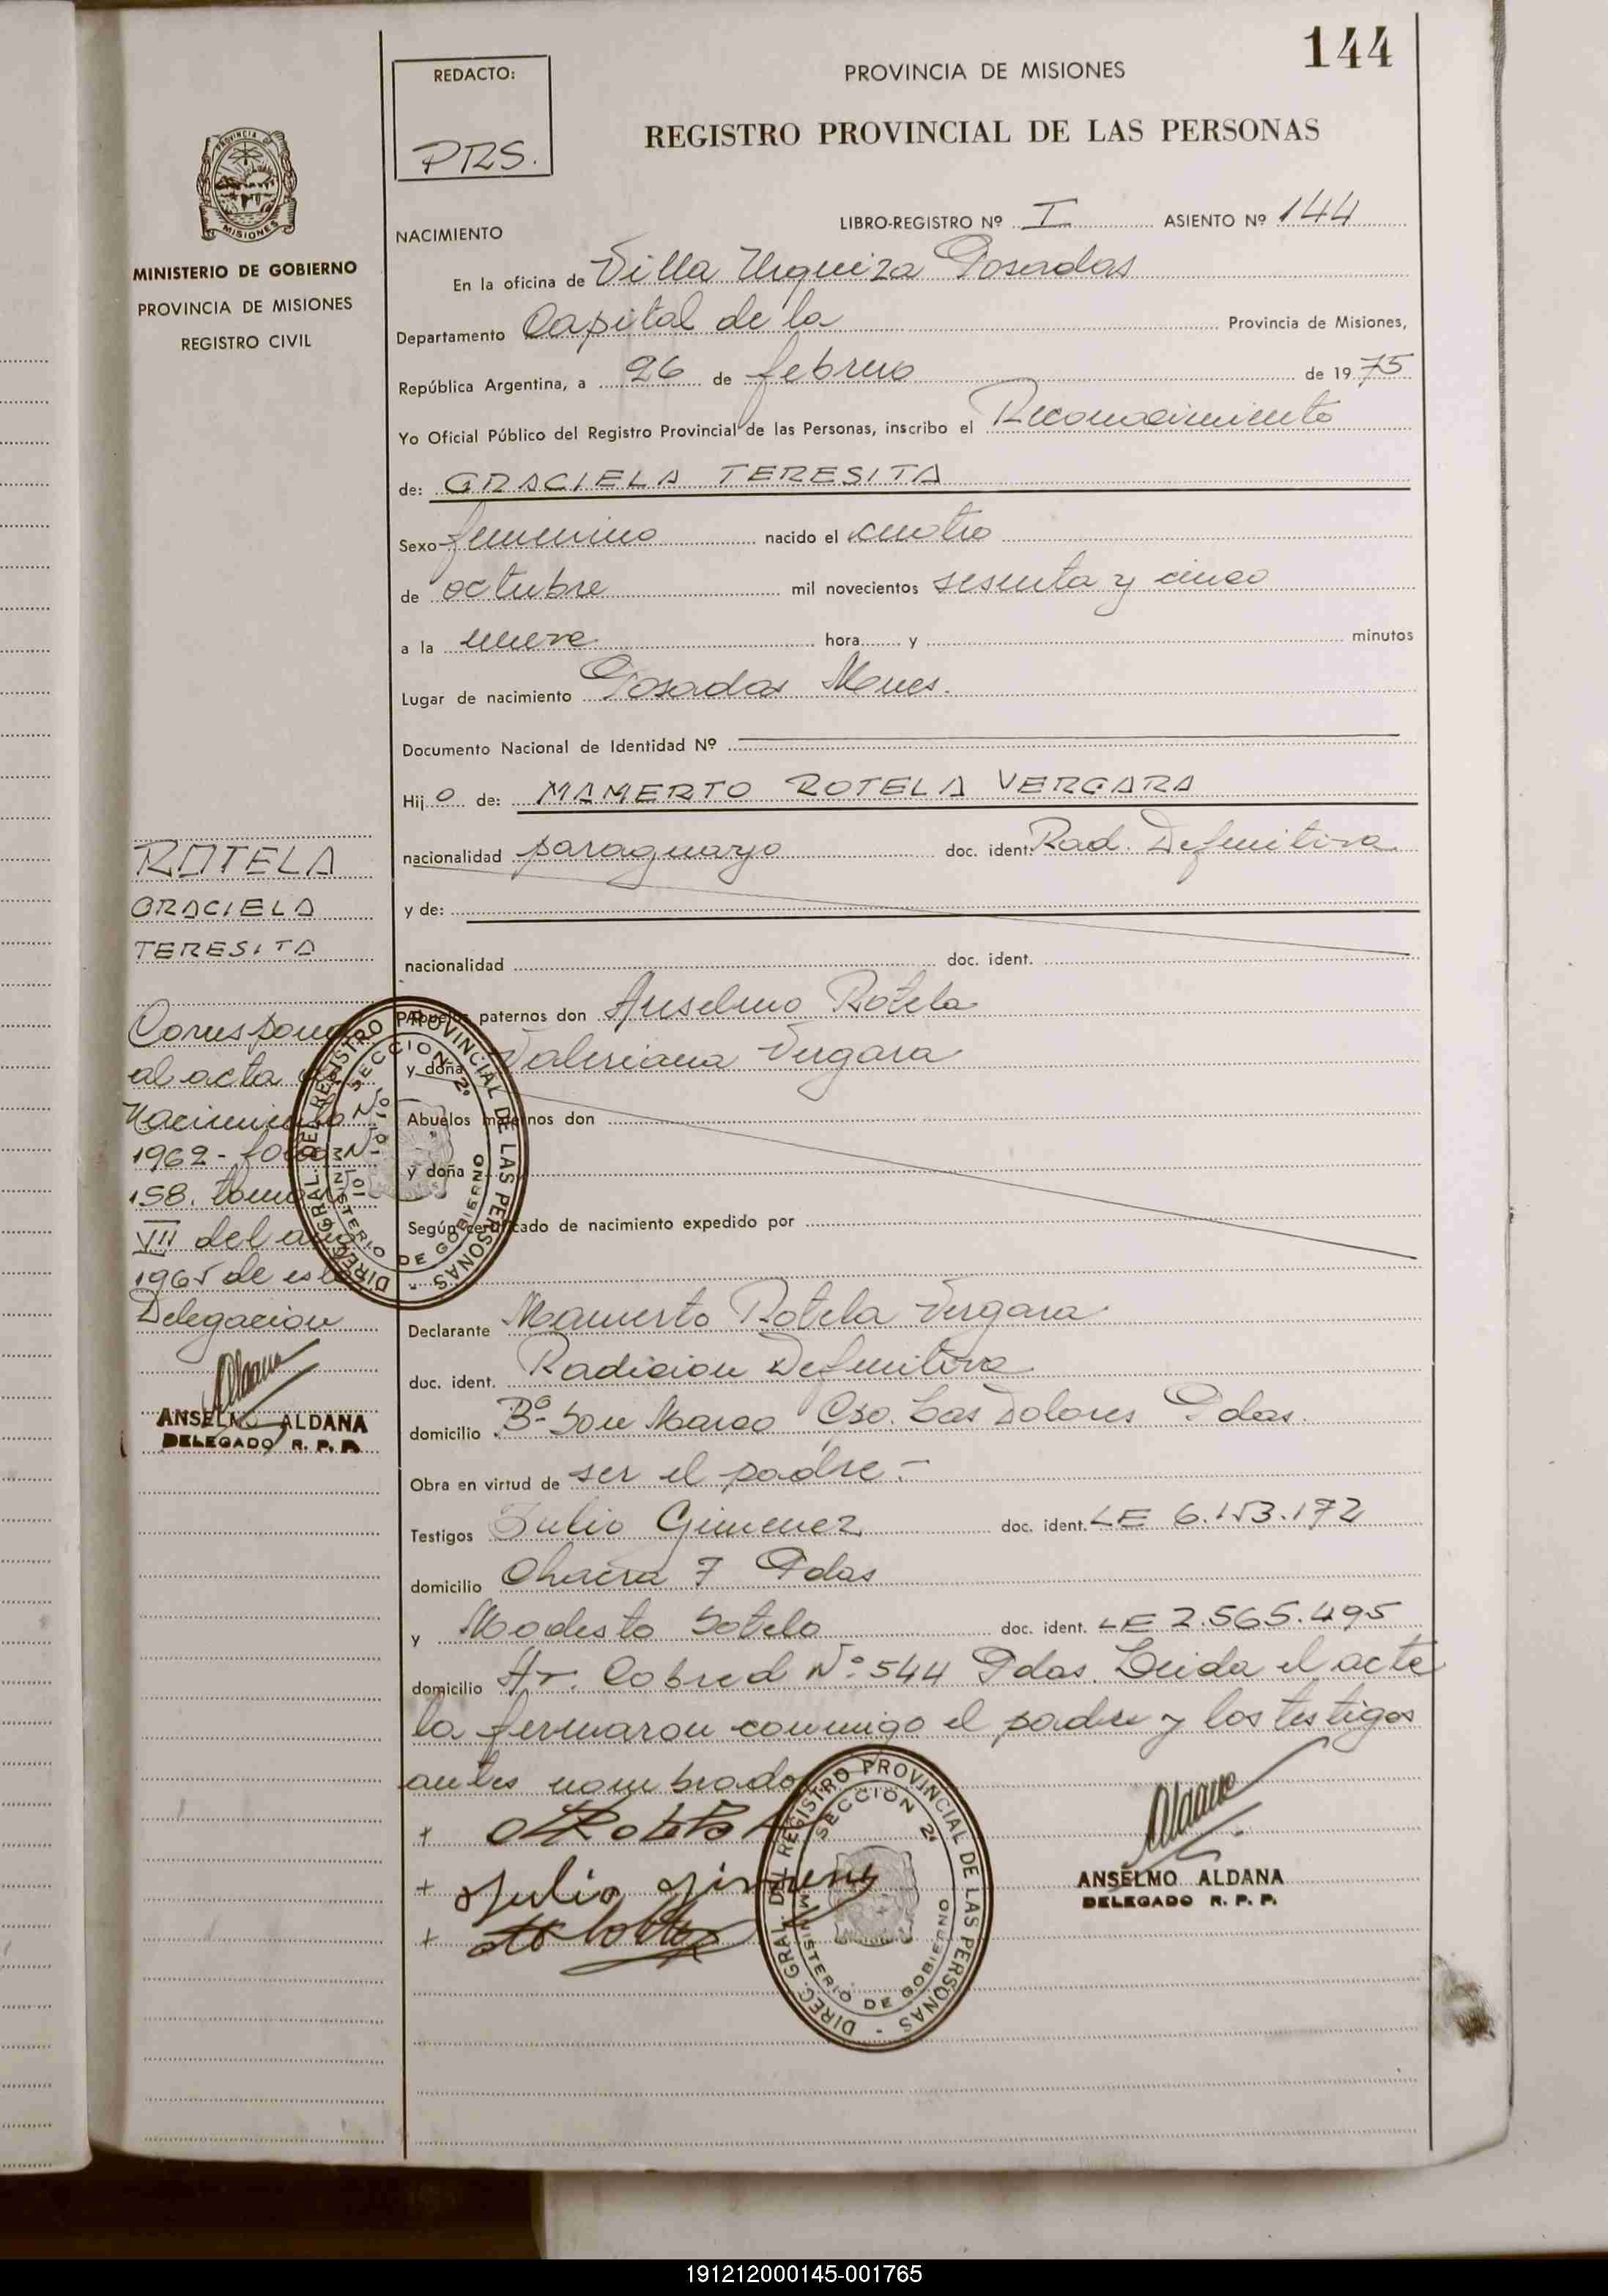 144
REDACTO:
PRS.
PROVINCIA DE MISIONES
REGISTRO PROVINCIAL DE LAS PERSONAS
PROVINCIA DE
MISIONES
MINISTERIO DE GOBIERNO
PROVINCIA DE MISIONES
REGISTRO CIVIL
NACIMIENTO
LIBRO-REGISTRO Nº I ASIENTO Nº 144
En la oficina de Villa Urquiza Posadas
Departamento Capital de la Provincia de Misiones,
República Argentina, a 26 de febrero de 1975
Yo Oficial Público del Registro Provincial de las Personas, inscribo el Reconocimiento
de: GRACIELA TERESITA
Sexo femenino nacido el cuatro
de octubre mil novecientos sesenta y cinco
a la nueve hora y minutos
Lugar de nacimiento Posadas Mnes.
Documento Nacional de Identidad Nº
Hijo de: MAMERTO ROTELA VERGARA
nacionalidad paraguayo doc. ident. Rad. Definitiva
y de:
nacionalidad doc. ident.
Abuelos paternos don Anselmo Rotela
y doña Valeriana Vergara
Abuelos maternos don
y doña
Según certificado de nacimiento expedido por
Declarante Mamerto Rotela Vergara
doc. ident. Radicion Definitiva
domicilio Bº San Marco Cso. Las Dolores Pdas.
Obra en virtud de ser el padre.-
Testigos Julio Gimenez doc. ident. LE 6.153.172
domicilio Chacra 7 Pdas
y Modesto Sotelo doc. ident. LE 2.565.495
domicilio Av. Cobred Nº 544 Pdas. Leida el acta
la fermaron conmigo el padre y los testigos
antes nombrados
+
+ Julio Gimenez
+
ANSELMO ALDANA
DELEGADO R. P. P.
DIREC. GRAL. DEL REGISTRO PROVINCIAL DE LAS PERSONAS -
SECCION 2ª
MINISTERIO DE GOBIERNO
ROTELA
GRACIELA
TERESITA
Corresponde
al acta de
Nacimiento Nº
1962 - folio Nº
158. tomo
VII del año
1965 de esta
Delegacion
Aldana
ANSELMO ALDANA
DELEGADO R. P. P.
DIREC. GRAL. DEL REGISTRO PROVINCIAL DE LAS PERSONAS -
SECCION 2ª
MINISTERIO DE GOBIERNO
191212000145-001765